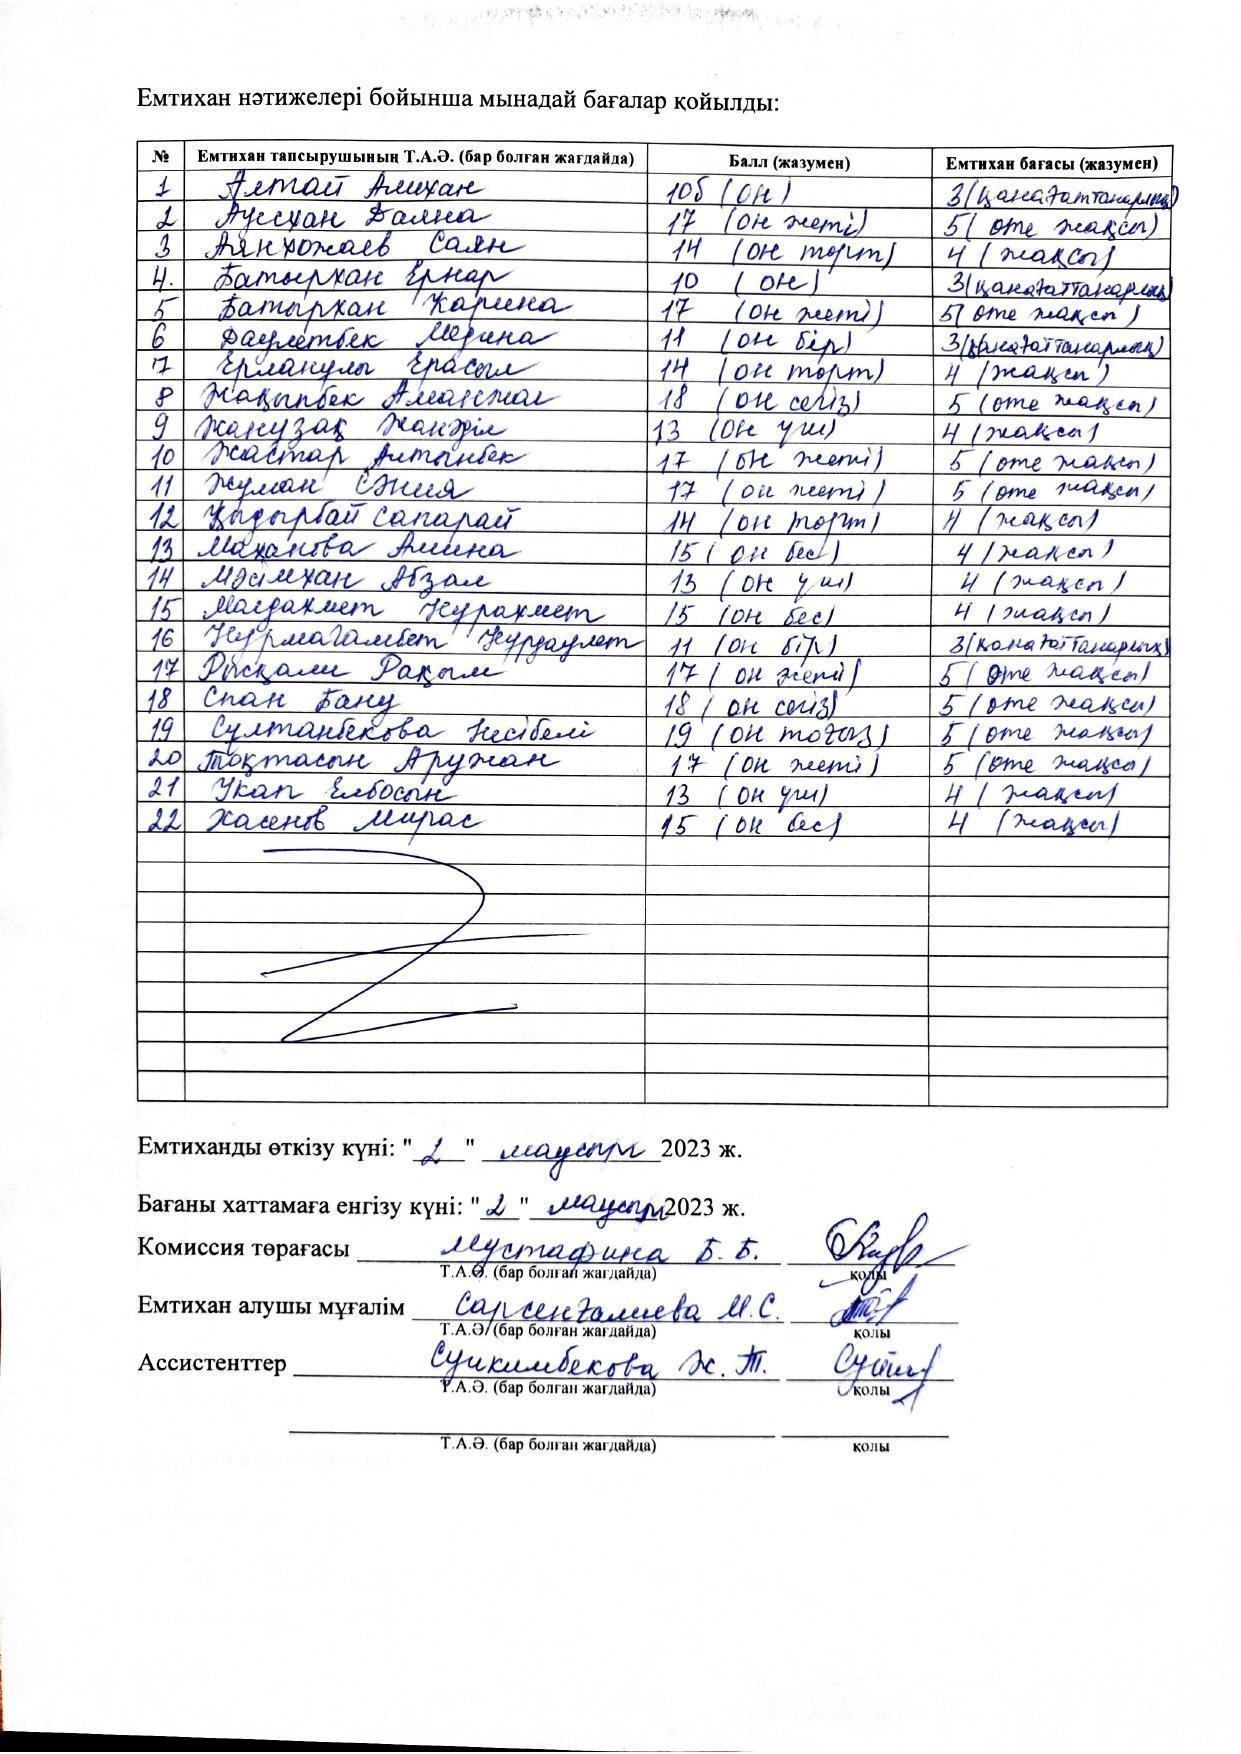 Емтихан нәтижелері бойынша мынадай бағалар қойылды:
№ Емтихан тапсырушының Т.А.Ә. (бар болған жағдайда) Балл (жазумен) Емтихан бағасы (жазумен)
1 Алтай Алихан 10б (он) 3(қанағаттанарлық)
2 Аусхан Даяна 17 (он жеті) 5( өте жақсы)
3 Аянхожаев Саян 14 (он төрт) 4 ( жақсы)
4. Батырхан Ернар 10 ( он ) 3(қанағаттанарлық)
5 Батырхан Карина 17 (он жеті) 5( өте жақсы )
6 Даулетбек Медина 11 (он бір) 3(қанағаттанарлық)
7 Ерланұлы Ерасыл 14 (он төрт) 4 (жақсы )
8 Жақыпбек Аманжол 18 (он сегіз) 5 (өте жақсы)
9 Жанұзақ Жанәділ 13 (он үш) 4 (жақсы)
10 Жастар Алтынбек 17 (он жеті) 5 (өте жақсы)
11 Жуман Сәния 17 (он жеті ) 5 (өте жақсы)
12 Қыдырбай Сапарай 14 (он төрт) 4 (жақсы)
13 Маханова Амина 15 ( он бес) 4 (жақсы )
14 Мәсімхан Абзал 13 (он үш) 4 (жақсы)
15 Молдахмет Нурахмет 15 (он бес) 4 (жақсы)
16 Нурмагамбет Нурдаулет 11 (он бір) 3(қанағаттанарлық)
17 Рысқали Рақым 17 ( он жеті) 5 ( өте жақсы)
18 Спан Бану 18 ( он сегіз) 5 (өте жақсы)
19 Султанбекова Несібелі 19 (он тоғыз) 5 (өте жақсы)
20 Тоқтасын Аружан 17 (он жеті ) 5 (өте жақсы)
21 Укап Елбосын 13 (он үш) 4 ( жақсы)
22 Хасенов Мирас 15 (он бес) 4 (жақсы)
Емтиханды өткізу күні: " 2 " маусым 2023 ж.
Бағаны хаттамаға енгізу күні: " 2 " маусым 2023 ж.
Комиссия төрағасы Мустафина Б. Б.
Т.А.Ә. (бар болған жағдайда) қолы
Емтихан алушы мұғалім Сарсенғалиева М.С.
Т.А.Ә. (бар болған жағдайда) қолы
Ассистенттер Суикимбекова Ж. Т.
Т.А.Ә. (бар болған жағдайда) қолы
Т.А.Ә. (бар болған жағдайда) қолы